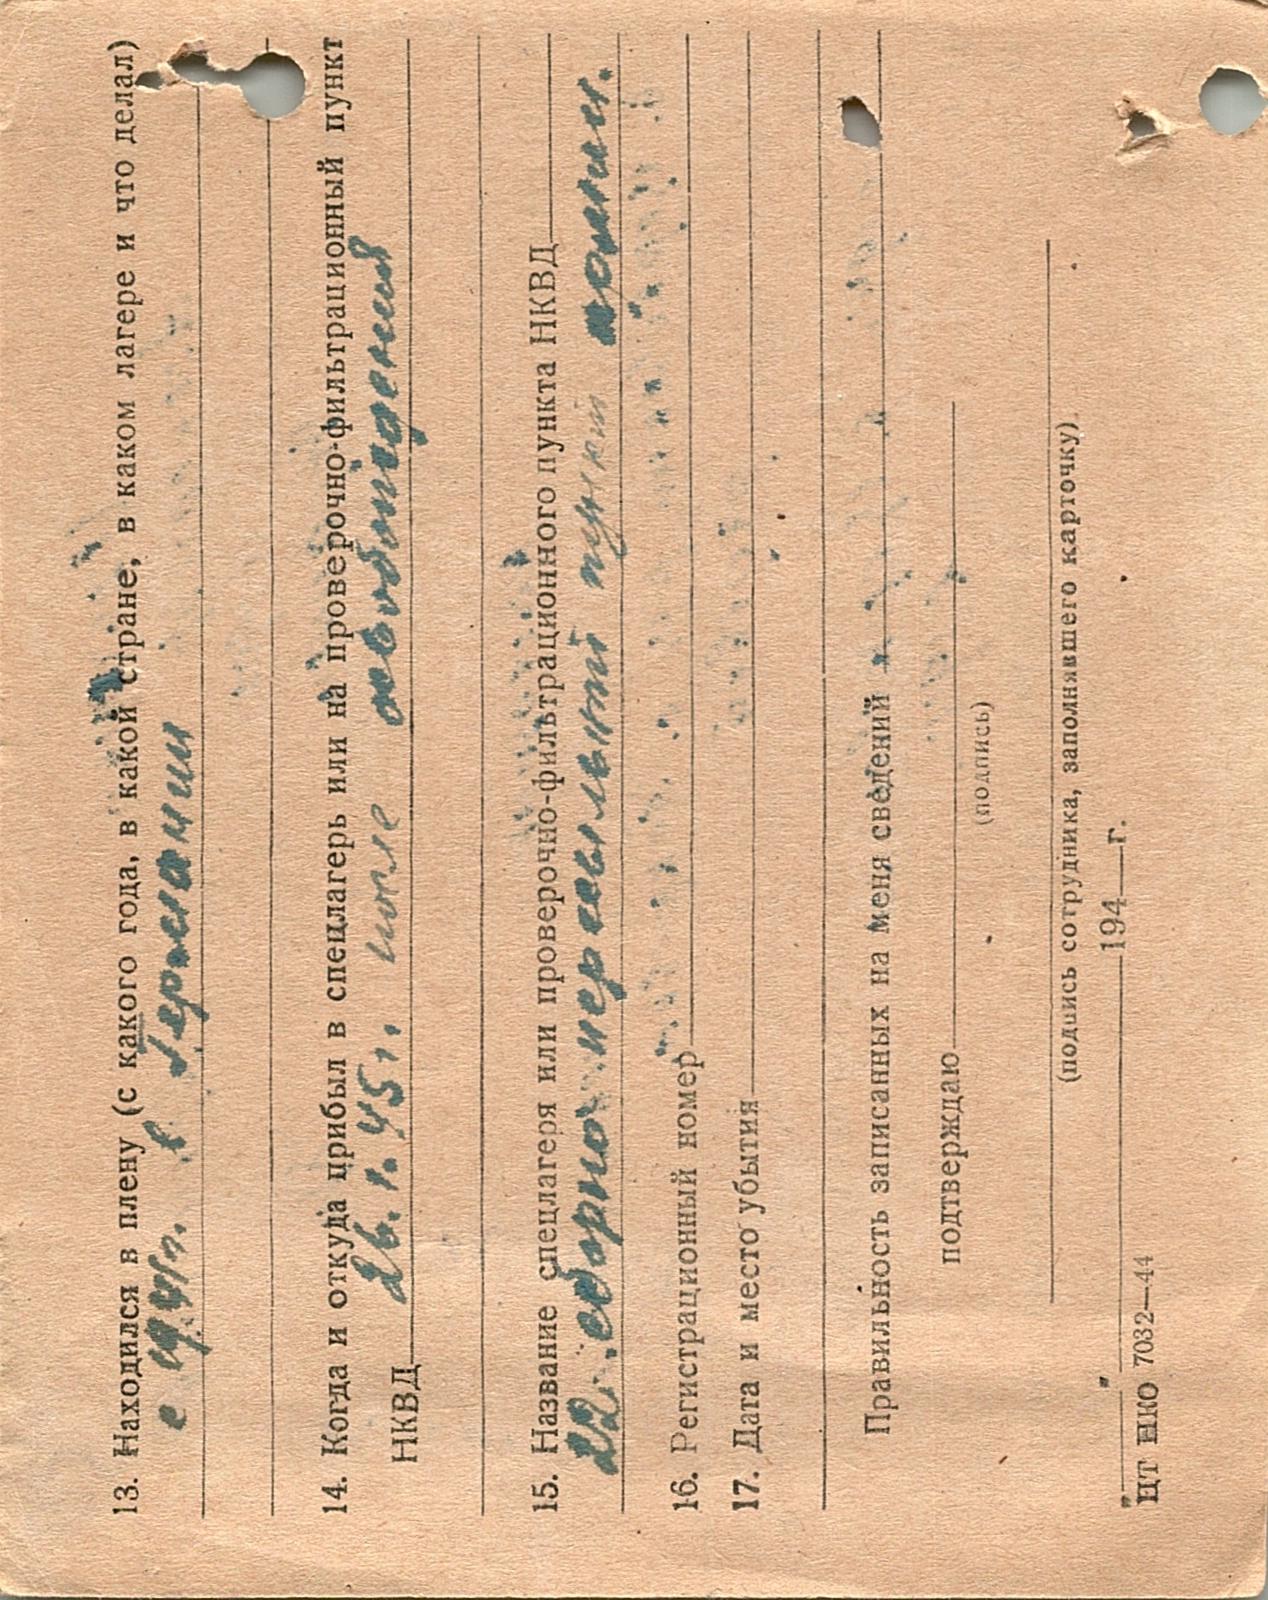 13. Находился в плену (с какого года, в какой стране, в каком лагере и что делал)
с 1941 г. в Германии
14. Когда и откуда прибыл в спецлагерь или на проверочно-фильтрационный пункт
НКВД 26.1.45 г. после освобождения
15. Название спецлагеря или проверочно-фильтрационного пункта НКВД
22 сборно пересыльный пункт армии.
16. Регистрационный номер
17. Дата и место убытия
Правильность записанных на меня сведений
подтверждаю
(подпись)
(подпись сотрудника, заполнявшего карточку)
" " 194 г.
ЦТ НКО 7032—44